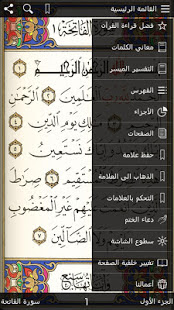 القائمة الرئيسية
فضل قراءة القرآن
معاني الكلمات
التفسير الميسر
الفهرس
الأجزاء
الصفحات
حفظ علامة
الذهاب الى العلامة
التحكم بالعلامات
دعاء الختم
سطوع الشاشة
تغيير خلفية الصفحة
أعمالنا
سورة الفاتحة
بسم الله الرحمن الرحيم
العلمين
الرحمن
ملك يوم الدين
نستعين
صرط
غير المغضوب
الضالين
الجزء الأول
1
سورة الفاتحة